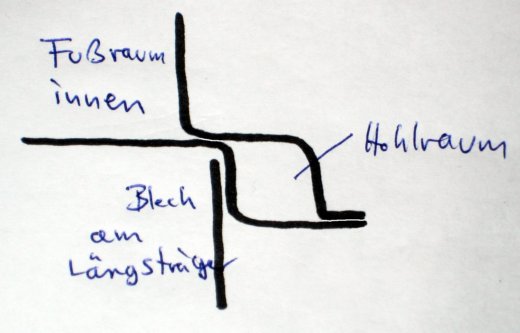 Fußraum
innen
Hohlraum
Blech
am
Längsträger